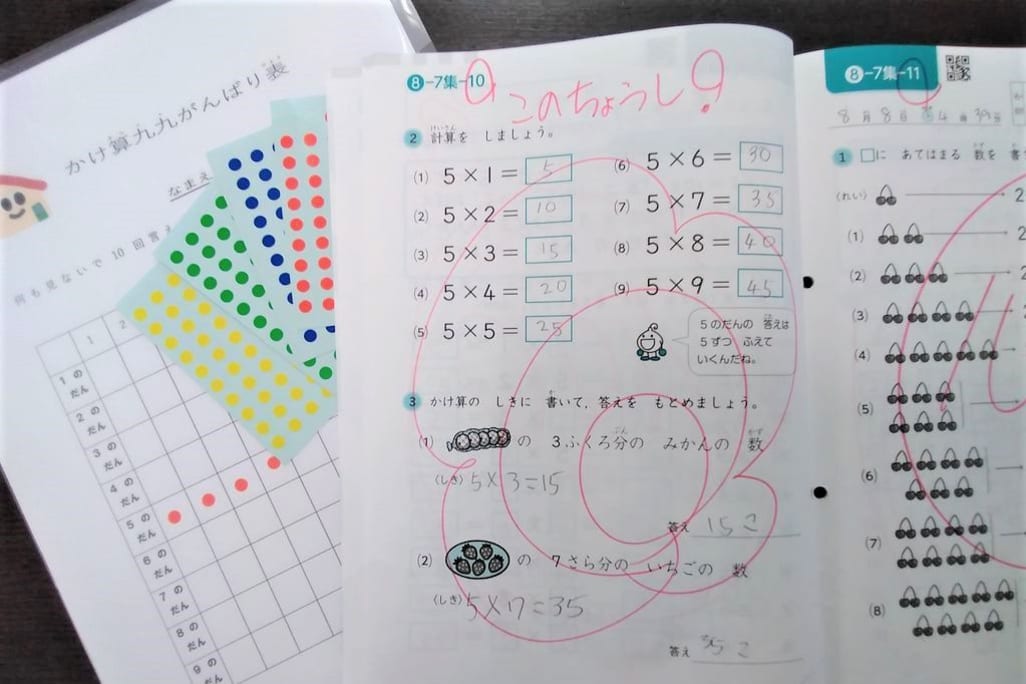 かけ算九九がんばり表
なまえ
何も見ないで10回言え
1 2
1のだん
2のだん
3のだん
4のだん
5のだん
6のだん
7のだん
8のだん
9のだん
8-7集-10
このちょうし!
2 計算を しましょう。
(1) 5×1= 5
(2) 5×2= 10
(3) 5×3= 15
(4) 5×4= 20
(5) 5×5= 25
(6) 5×6= 30
(7) 5×7= 35
(8) 5×8= 40
(9) 5×9= 45
5のだんの 答えは
5ずつ ふえて
いくんだね。
3 かけ算の しきに 書いて、答えを もとめましょう。
(1) の 3ふくろ分の みかんの 数
(しき) 5×3=15
答え 15こ
(2) の 7さら分の いちごの 数
(しき) 5×7=35
答え 35こ
8-7集-11
8月8日
1 □に あてはまる 数を 書
(れい) 2
(1) 2
(2)
(3)
(4)
(5)
(6)
(7)
(8)